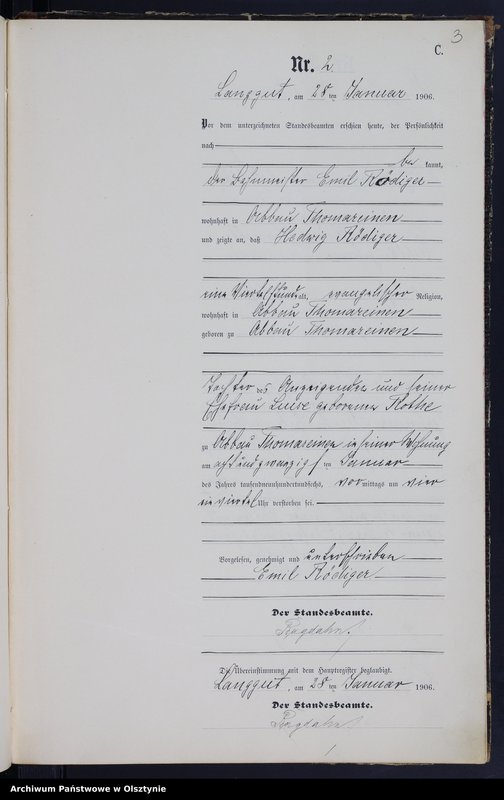 3
C.
Nr. 2
Langgut, am 28ten Januar 1906.
Vor dem unterzeichneten Standesbeamten erschien heute, der Persönlichkeit
nach
be kannt,
der Emil Rödiger
wohnhaft in Abbau Thomareinen
und zeigte an, daß Hedwig Rödiger
eine Viertelstunde alt, evangelischer Religion,
wohnhaft in Abbau Thomareinen
geboren zu Abbau Thomareinen
Tochter des Anzeigenden und seiner
Ehefrau Luise geborenen Kothe
zu Abbau Thomareinen in seiner Wohnung
am achtundzwanzigsten Januar
des Jahres tausendneunhundertundsechs, vormittags um vier
ein viertel Uhr verstorben sei.
Vorgelesen, genehmigt und unterschrieben
Emil Rödiger
Der Standesbeamte.
Die Übereinstimmung mit dem Hauptregister beglaubigt.
Langgut, am 28ten Januar 1906.
Der Standesbeamte.
Archiwum Państwowe w Olsztynie